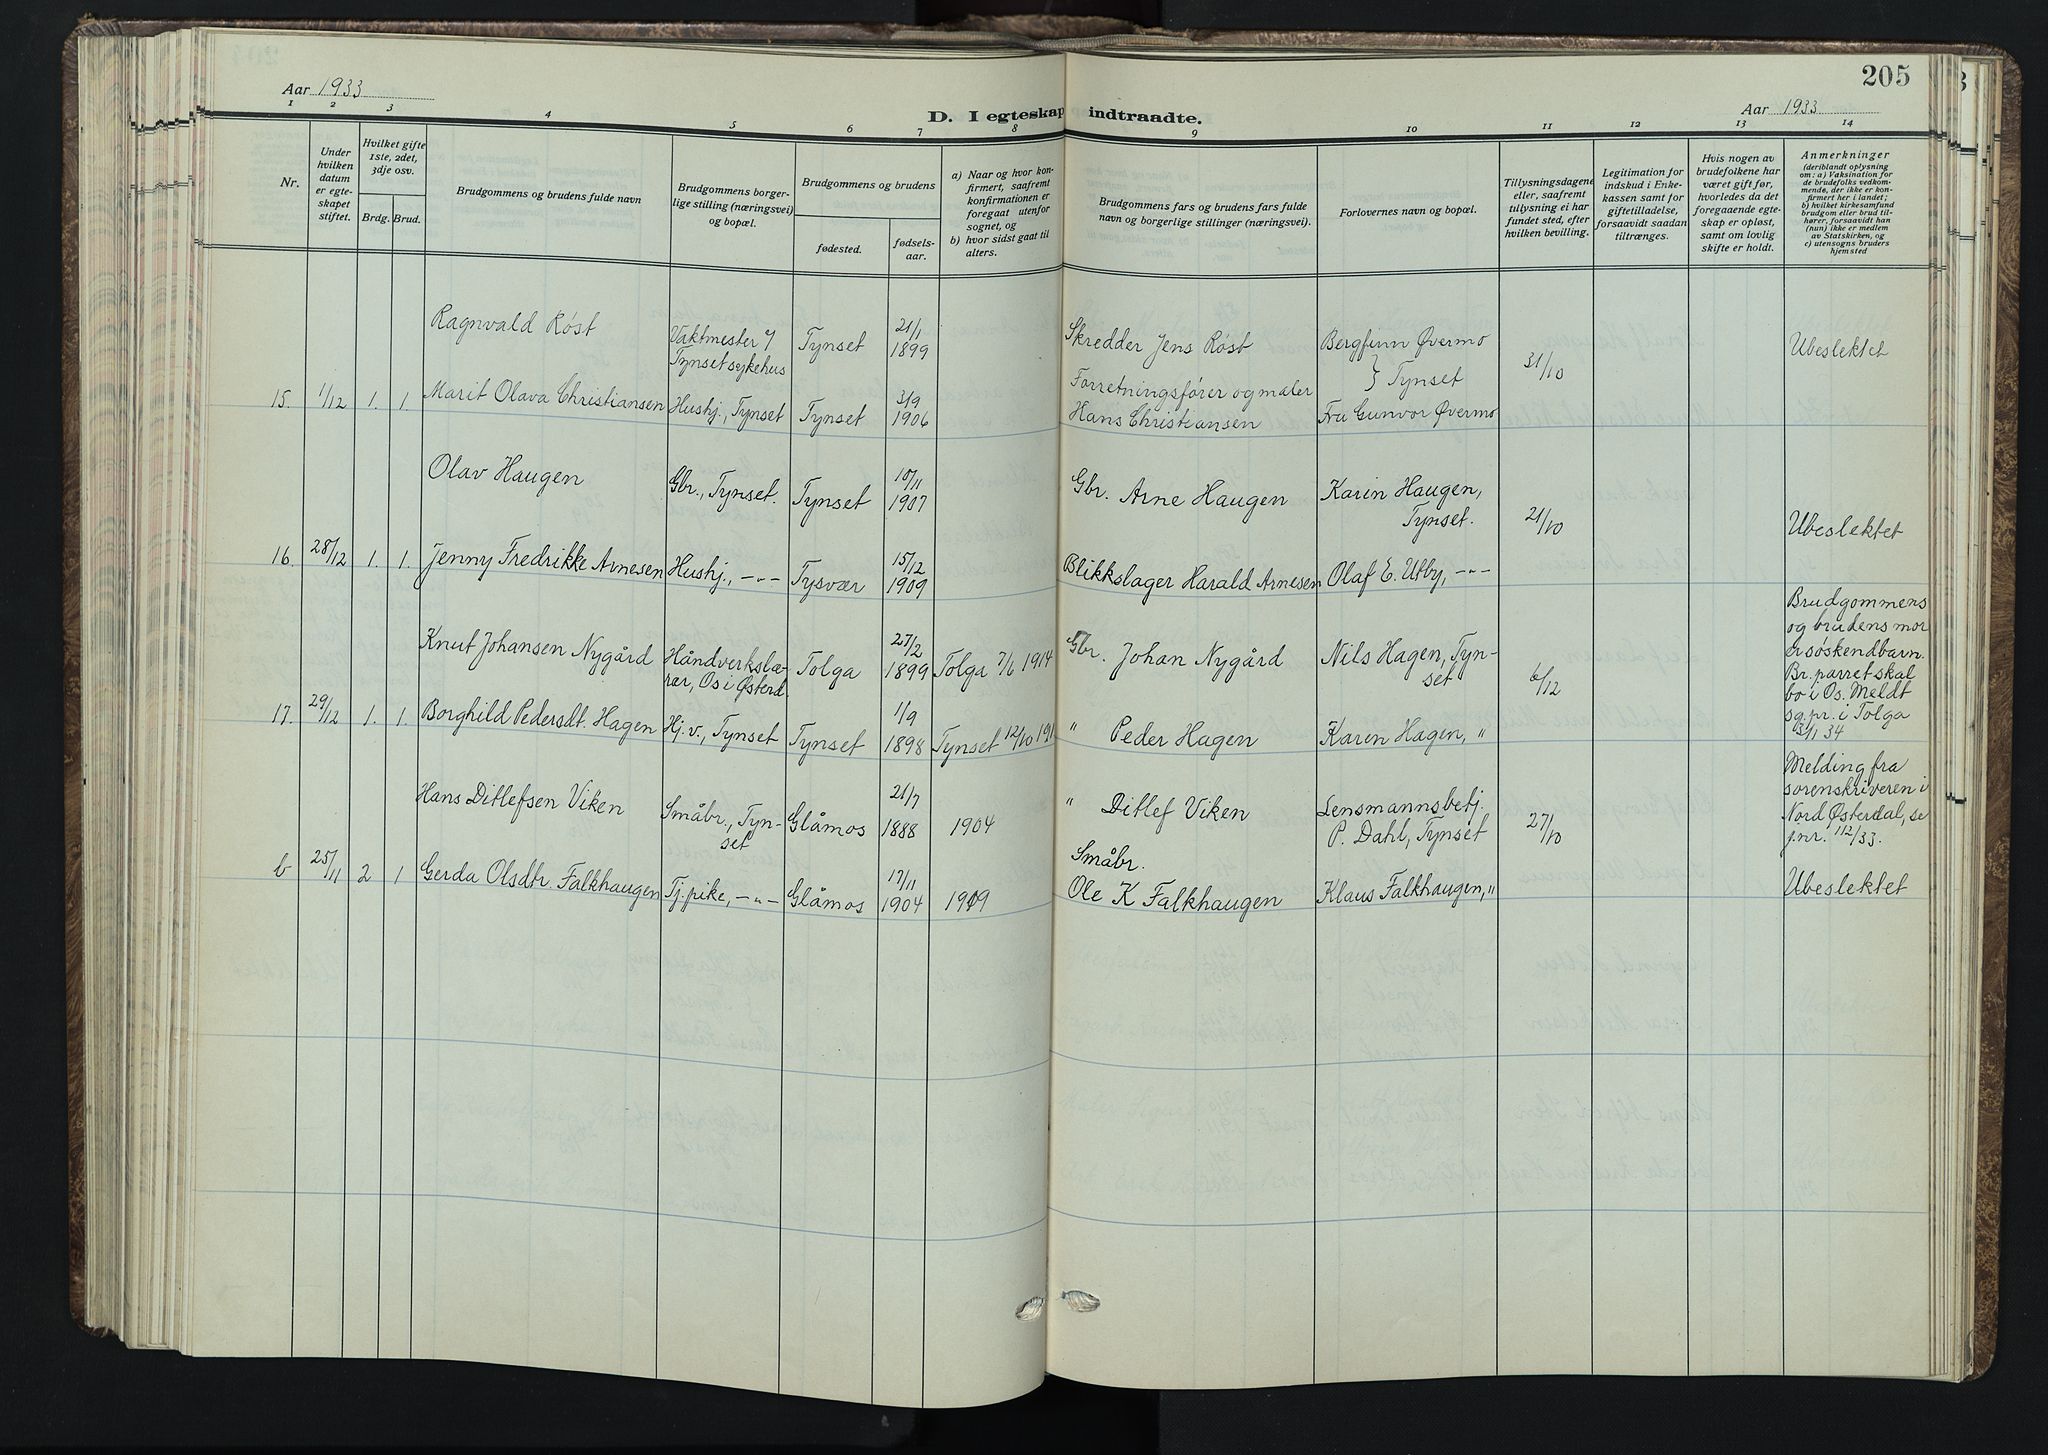 205
Aar 1933
Aar 1933
D. I egteskap indtraadte.
1 2 3 4 5 6 7 8 9 10 11 12 13 14
Nr.
Under
hvilken
datum
er egte-
skapet
stiftet.
Hvilket gifte
1ste, 2det,
3dje osv.
Brdg. Brud.
Brudgommens og brudens fulde navn
Brudgommens borger-
lige stilling (næringsvei)
og bopæl.
Brudgommens og brudens
fødested.
fødsels-
aar.
a) Naar og hvor kon-
firmert, saafremt
konfirmationen er
foregaat utenfor
sognet, og
b) hvor sidst gaat til
alters.
Brudgommens fars og brudens fars fulde
navn og borgerlige stillinger (næringsvei).
Forlovernes navn og bopæl.
Tillysningsdagene
eller, saafremt
tillysning ei har
fundet sted, efter
hvilken bevilling.
Legitimation for
indskud i Enke-
kassen samt for
giftetilladelse,
forsaavidt saadan
tiltrænges.
Hvis nogen av
brudefolkene har
været gift før,
hvorledes da det
foregaaende egte-
skap er opløst,
samt om lovlig
skifte er holdt.
Anmerkninger
(deriblandt oplysning
om: a) Vaksination for
de brudefolks vedkom-
mende, der ikke er kon-
firmert her i landet;
b) hvilket kirkesamfund
brudgom eller brud til-
hører, forsaavidt han
(hun) ikke er medlem
av Statskirken, og
c) utensogns bruders
hjemsted
15. 1/12 1. 1.
Ragnvald Røst
Vaktmester v/
Tynset sykehus
Tynset
21/1
1899
Skredder Jens Røst
Bergfinn Øvermo
} Tynset
31/10
Ubeslektet
Marit Olava Christiansen
Hushj., Tynset
Tynset
3/9
1906
Forretningsfører og maler
Hans Christiansen
Fru Gunvor Øvermo
16. 28/12 1. 1.
Olav Haugen
Gbr., Tynset.
Tynset
10/11
1907
Gbr. Arne Haugen
Karin Haugen,
Tynset.
21/10
Ubeslektet
Jenny Fredrikke Arnesen
Hushj., -"-
Tysvær
15/12
1909
Blikkslager Harald Arnesen
Olaf E. Utby, -"-
17. 29/12 1. 1.
Knut Johansen Nygård
Håndverkslæ-
rer, Os i Østerd.
Tolga
27/2
1899
Tolga 7/6 1914
Gbr. Johan Nygård
Nils Hagen, Tyn-
set
6/12
Brudgommens
og brudens mor
er søskendbarn.
Br.parret skal
bo i Os. Meldt
sg.pr. i Tolga
3/1 34
Borghild Pedersdt. Hagen
Hj.v., Tynset
Tynset
1/9
1898
Tynset 12/10 191
" Peder Hagen
Karen Hagen, "
b 25/11 2 1
Hans Ditlefsen Viken
Småbr., Tyn-
set
Glåmos
21/7
1888
1904
" Ditlef Viken
Lensmannsbetj.
P. Dahl, Tynset
27/10
Melding fra
sorenskriveren i
Nord Østerdal, se
j.nr. 112/33.
Gerda Olsdtr. Falkhaugen
Tj.pike, -"-
Glåmos
17/11
1904
1919
Småbr.
Ole K Falkhaugen
Klaus Falkhaugen, "
Ubeslektet